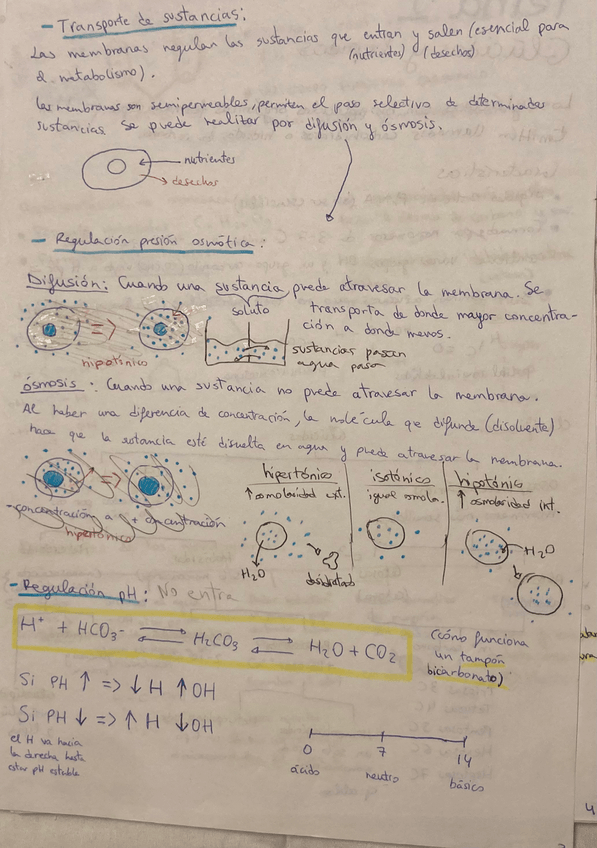 - Transporte de sustancias:
Las membranas regulan las sustancias que entran y salen (esencial para
(nutrientes) (desechos)
el metabolismo).
Las membranas son semipermeables, permiten el paso selectivo de determinadas
sustancias. Se puede realizar por difusión y ósmosis.
nutrientes
desechos
- Regulación presión osmótica:
Difusión: Cuando una sustancia puede atravesar la membrana. Se
soluto
transporta de donde mayor concentra-
ción a donde menos.
hipotónico
sustancias pasan
agua pasa
Ósmosis: Cuando una sustancia no puede atravesar la membrana.
Al haber una diferencia de concentración, la molécula que difunde (disolvente)
hace que la sustancia esté disuelta en agua y puede atravesar la membrana.
concentración a + concentración
hipertónico
hipertónico
↑ osmolaridad ext.
H₂O
deshidratado
isotónico
igual osmola.
hipotónico
↑ osmolaridad int.
H₂O
- Regulación pH: No entra
H⁺ + HCO₃- ⇌ H₂CO₃ ⇌ H₂O + CO₂
(cómo funciona
un tampón
bicarbonato)
Si PH ↑ => ↓ H ↑ OH
Si PH ↓ => ↑ H ↓ OH
el H va hacia
la derecha hasta
estar pH estable
0 7 14
ácido neutro básico
4